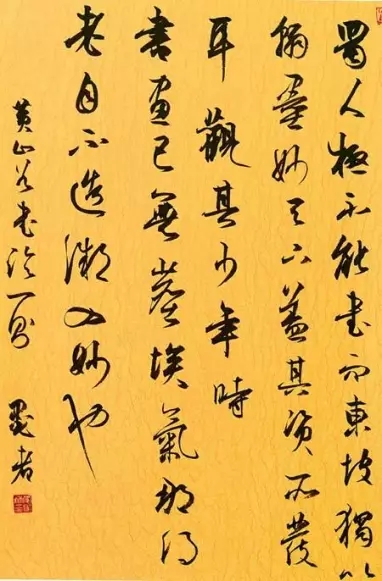 蜀人極不能書而東坡獨以
翰墨妙天下蓋其資所發
耳觀其少年時
書畫已無塵埃氣那得
老自不造微入妙也
黄山谷書論一則